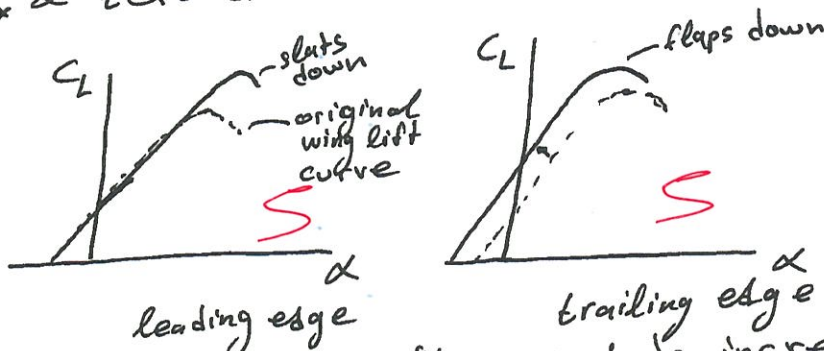 C_L
slats
down
original
wing lift
curve
S
α
leading edge
C_L
flaps down
S
α
trailing edge